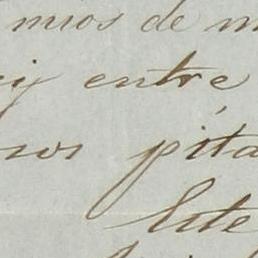 mios de m
y entre
nos pita
Este